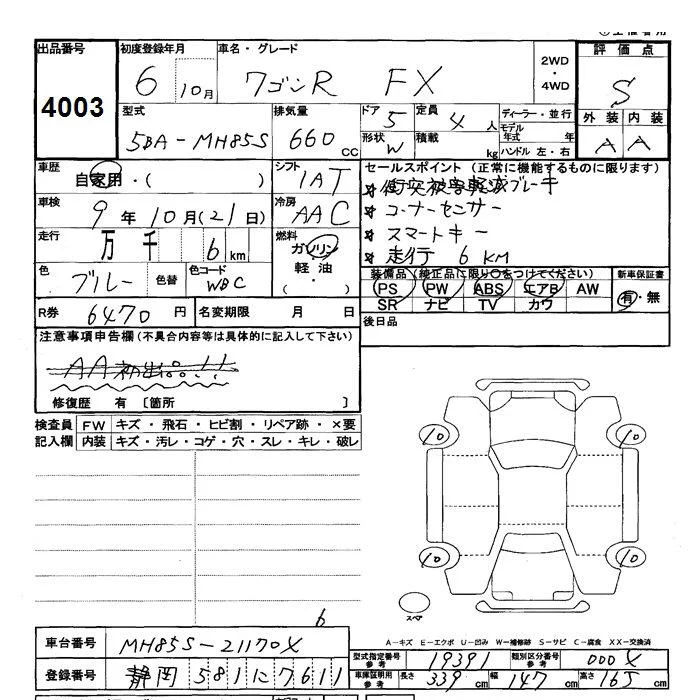 出品番号 初度登録年月 車名・グレード 2WD・4WD 評価点
4003 6 10月 ワゴンR FX S
型式 排気量 ドア 5 定員 4人 ディーラー・並行 外装 内装
5BA-MH85S 660cc 形状 W 積載 kg モデル年式 年 A A
ハンドル 左・右
車歴 シフト セールスポイント (正常に機能するものに限ります)
自家用・( ) 1AT ☆ 衝突被害軽減ブレーキ
車検 冷房 ☆ コーナーセンサー
9年10月(21日) AAC ☆ スマートキー
走行 燃料 ☆ 走行 6KM
万 千 6km ガソリン・軽油・( )
色 色替 色コード 装備品 (純正品に限り○をつけてください) 新車保証書
ブルー WBC PS PW ABS エアB AW 有・無
SR ナビ TV カワ
R券 6470円 名変期限 月 日 後日品
注意事項申告欄 (不具合内容等は具体的に記入して下さい)
AA初出品!!
修復歴 有 〔箇所 〕
検査員記入欄 FW キズ・飛石・ヒビ割・リペア跡・×要
内装 キズ・汚レ・コゲ・穴・スレ・キレ・破レ
10 10
10 10
スペア
6
A-キズ E-エクボ U-凹み W-補修跡 S-サビ C-腐食 XX-交換済
車台番号 MH85S-21170X
型式指定番号 参考 19391 類別区分番号 参考 000X
登録番号 静岡 581 に 7611
車庫証明用 参考 長さ 339cm 幅 147cm 高さ 165cm